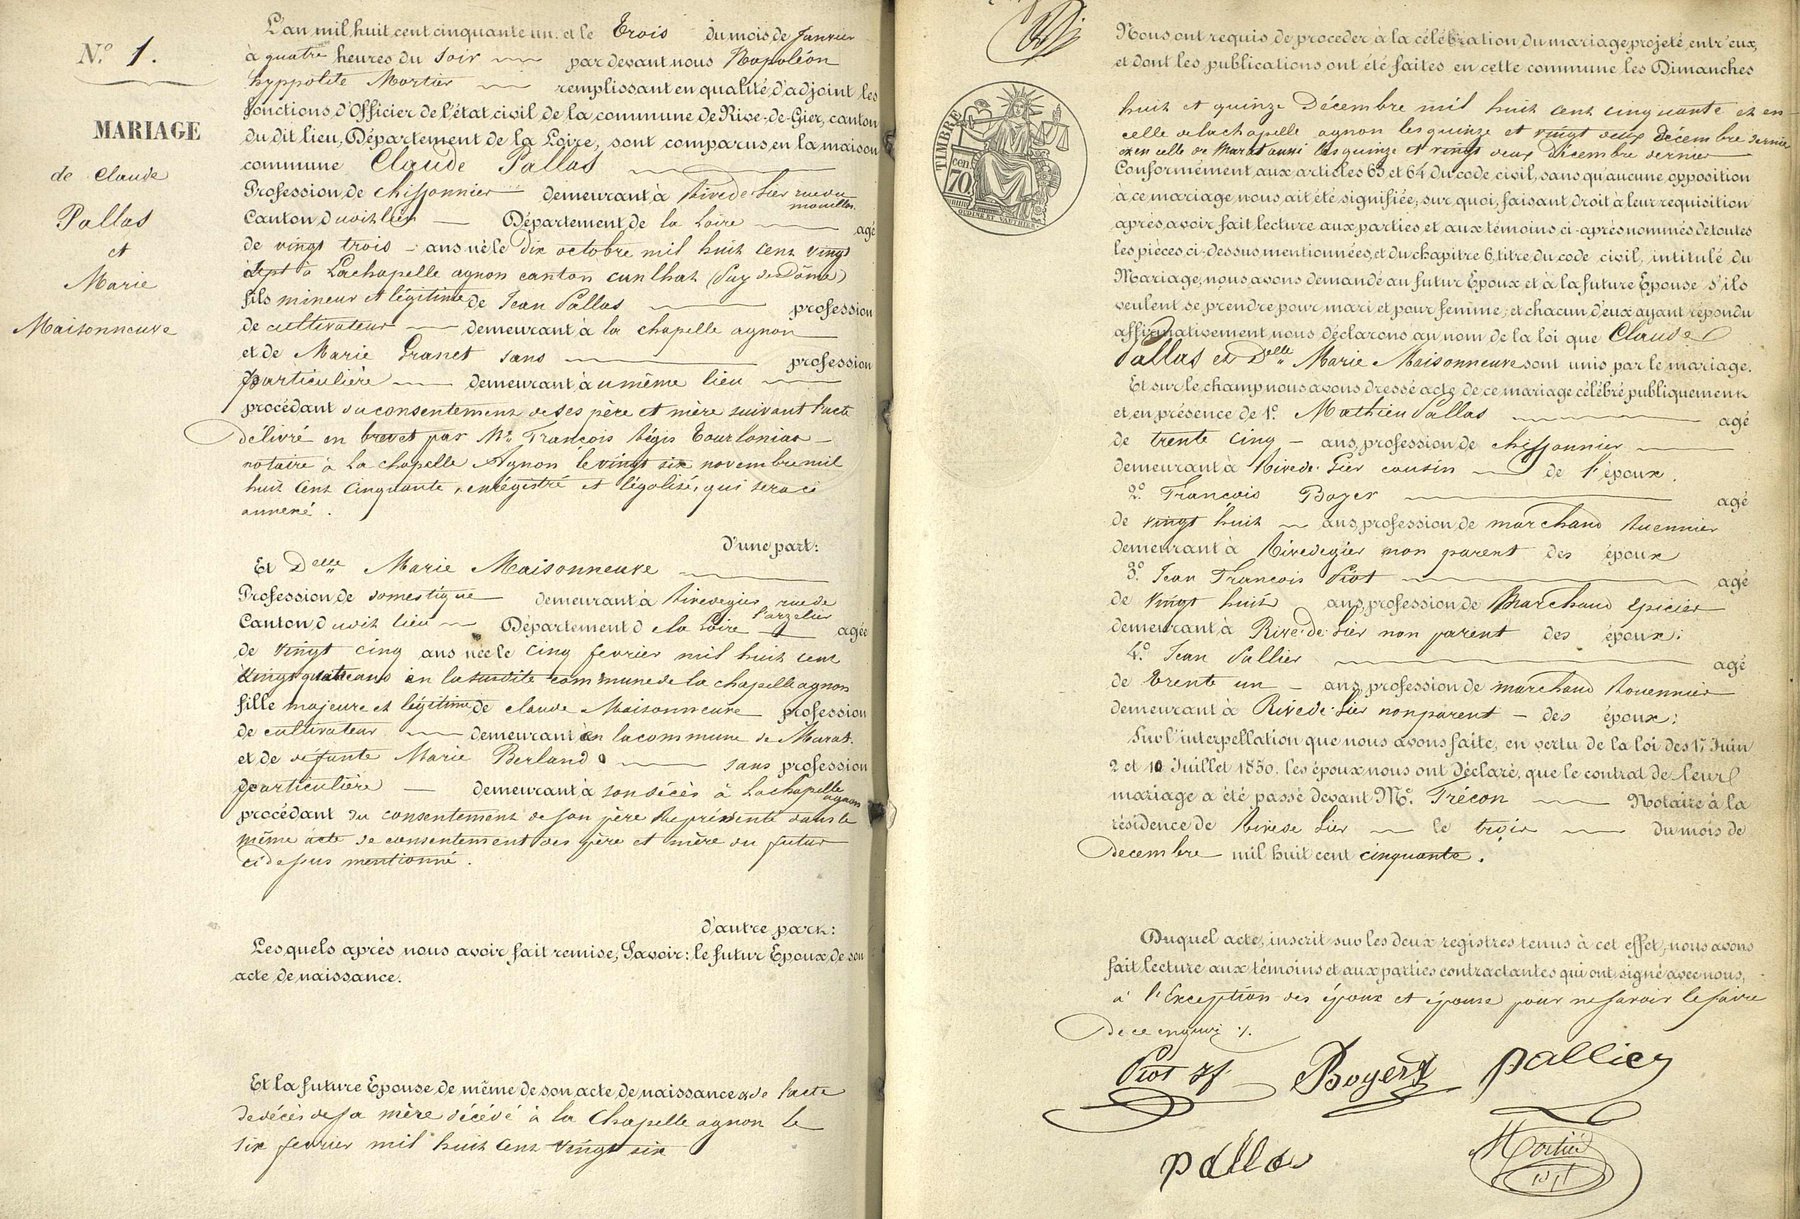 N° 1.
MARIAGE
de Claude
Pallas
et
Marie
Maisonneuve
L'an mil huit cent cinquante un et le Trois du mois de Janvier
à quatre heures du Soir par devant nous Napoléon
hyppolite Mortier remplissant en qualité d'adjoint les
fonctions d'Officier de l'état civil de la commune de Rive-de-Gier, canton
du dit lieu, Département de la Loire, sont comparus en la maison
commune Claude Pallas
Profession de chiffonnier demeurant à Rive de Gier rue du
mouillon
Canton dudit lieu Département de la Loire agé
de vingt trois ans né le dix octobre mil huit cent vingt
sept à Lachapelle agnon canton cunlhat (Puy de Dôme)
fils mineur et légitime de Jean Pallas profession
de cultivateur demeurant à la chapelle agnon
et de Marie Granet sans profession
particulière demeurant à u même lieu
procédant du consentement de ses père et mère suivant l'acte
délivré en brevet par Me François Régis Tourlonias
notaire à La chapelle Agnon le vingt six novembre mil
huit cent cinquante, enrégistré et légalisé, qui sera ci
annexé.
d'une part:
Et Delle Marie Maisonneuve
Profession de domestique demeurant à Rivedegier rue de
l'arzelier
Canton dudit lieu Département de la Loire agée
de vingt cinq ans née le cinq fevrier mil huit cent
vingt quatre ans en la susdite commune de la chapelle agnon
fille majeure et légitime de claude Maisonneuve profession
de cultivateur demeurant en la commune de Marat.
et de défunte Marie Berland sans profession
particulière demeurant à son décès à Lachapelle
agnon
procédant du consentement de son père Représenté dans le
même acte de consentement des père et mère du futur
ci dessus mentionné.
d'autre part:
Lesquels après nous avoir fait remise, Savoir: le futur Epoux de son
acte de naissance.
Et la future Epouse de même de son acte de naissance & de l'acte
de décès de sa mère décédé à la Chapelle agnon le
six fevrier mil huit cent vingt six
TIMBRE
70 cen
Nous ont requis de procéder à la célébration du mariage projeté entr'eux,
et dont les publications ont été faites en cette commune les Dimanches
huit et quinze Décembre mil huit cent cinquante et en
celle de Lachapelle agnon les quinze et vingt deux Décembre dernier
et en celle de Marat aussi les quinze et vingt deux Décembre dernier
Conformément aux articles 63 et 64 du code civil, sans qu'aucune opposition
à ce mariage nous ait été signifiée, sur quoi, faisant droit à leur requisition
après avoir fait lecture aux parties et aux témoins ci-après nommés de toutes
les pièces ci-dessus mentionnées, et du chapitre 6, titre du code civil, intitulé du
Mariage, nous avons demandé au futur Epoux et à la future Epouse s'ils
veulent se prendre pour mari et pour femme; et chacun d'eux ayant répondu
affirmativement nous déclarons au nom de la loi que Claude
Pallas et Delle Marie Maisonneuve sont unis par le mariage.
Et sur le champ nous avons dressé acte de ce mariage célébré publiquement
et en présence de 1° Mathieu Pallas agé
de trente cinq ans, profession de chiffonnier
demeurant à Rive de Gier cousin de l'époux.
2° François Boyer agé
de vingt huit ans, profession de marchand Rouennier
demeurant à Rivedegier non parent des époux
3° Jean François Piot agé
de vingt huit ans, profession de Marchand Epicier
demeurant à Rive-de-Gier non parent des époux;
4° Jean Pallier agé
de trente un ans, profession de marchand Rouennier
demeurant à Rive de Gier non parent des époux;
Sur l'interpellation que nous avons faite, en vertu de la loi des 17 Juin
2 et 10 Juillet 1850, les époux nous ont déclaré, que le contrat de leur
mariage a été passé devant Me Trécon Notaire à la
résidence de Rive de Gier le trois du mois de
Decembre mil huit cent cinquante.
Duquel acte, inscrit sur les deux registres tenus à cet effet, nous avons
fait lecture aux témoins et aux parties contractantes qui ont signé avec nous,
à l'Exception des époux et épouse pour ne savoir le faire
de ce enquis ./.
Piot Jf Boyer Pallier
Pallas Mortier